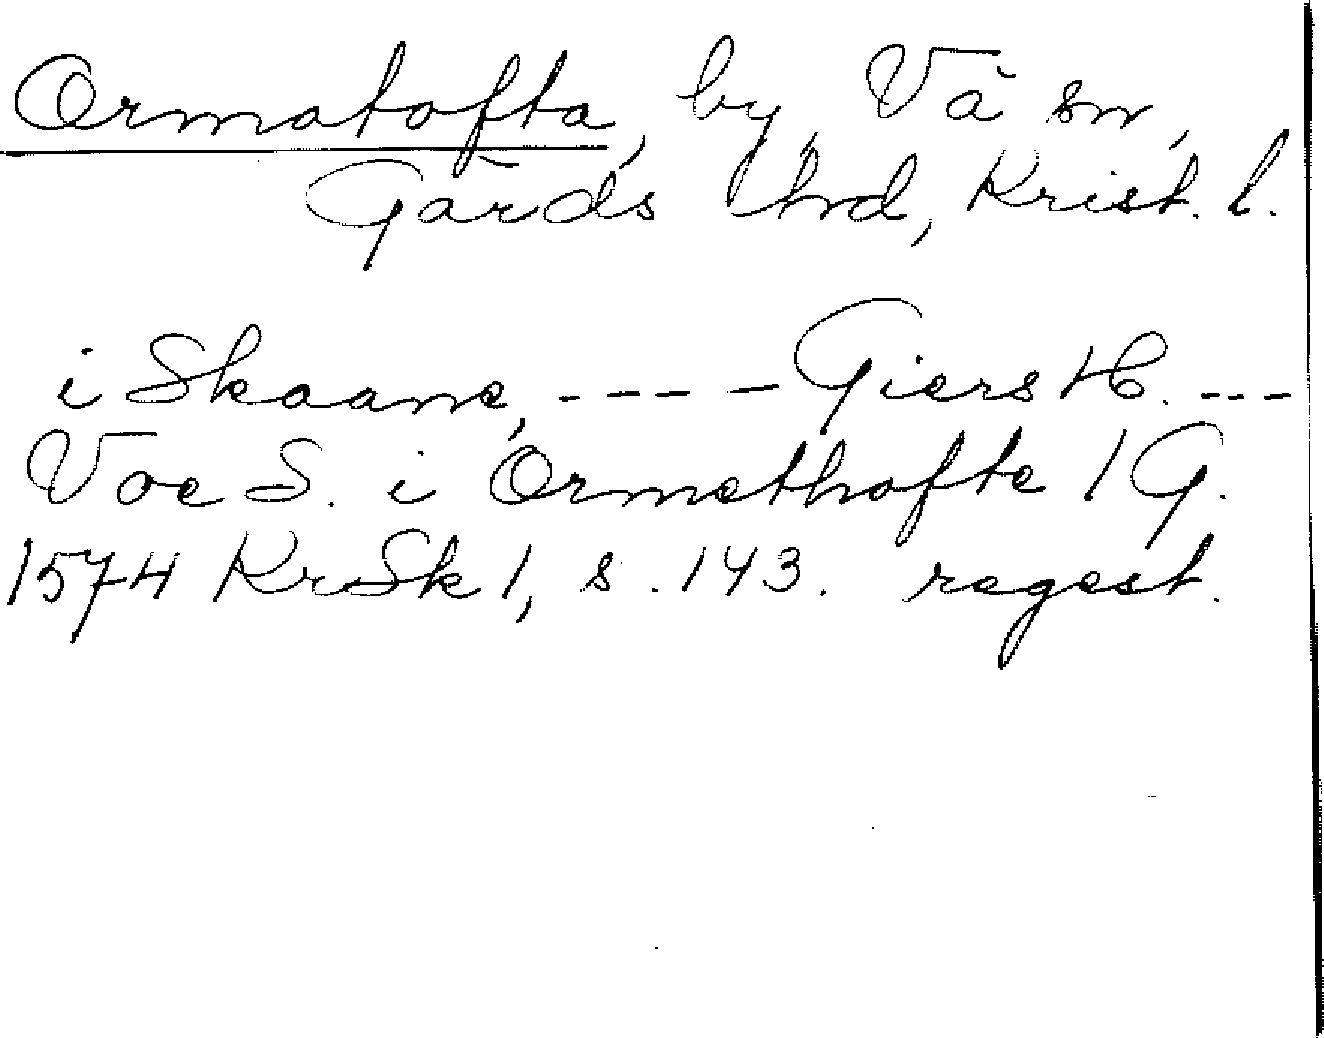 Ormatofta, by, Vä sn,
Gärds hrd, Krist. l.
i Skaane, - - - - Giers H. - - -
Voe S. i Ormethofte 1 G.
1574 KrSk 1, s. 143. regest.